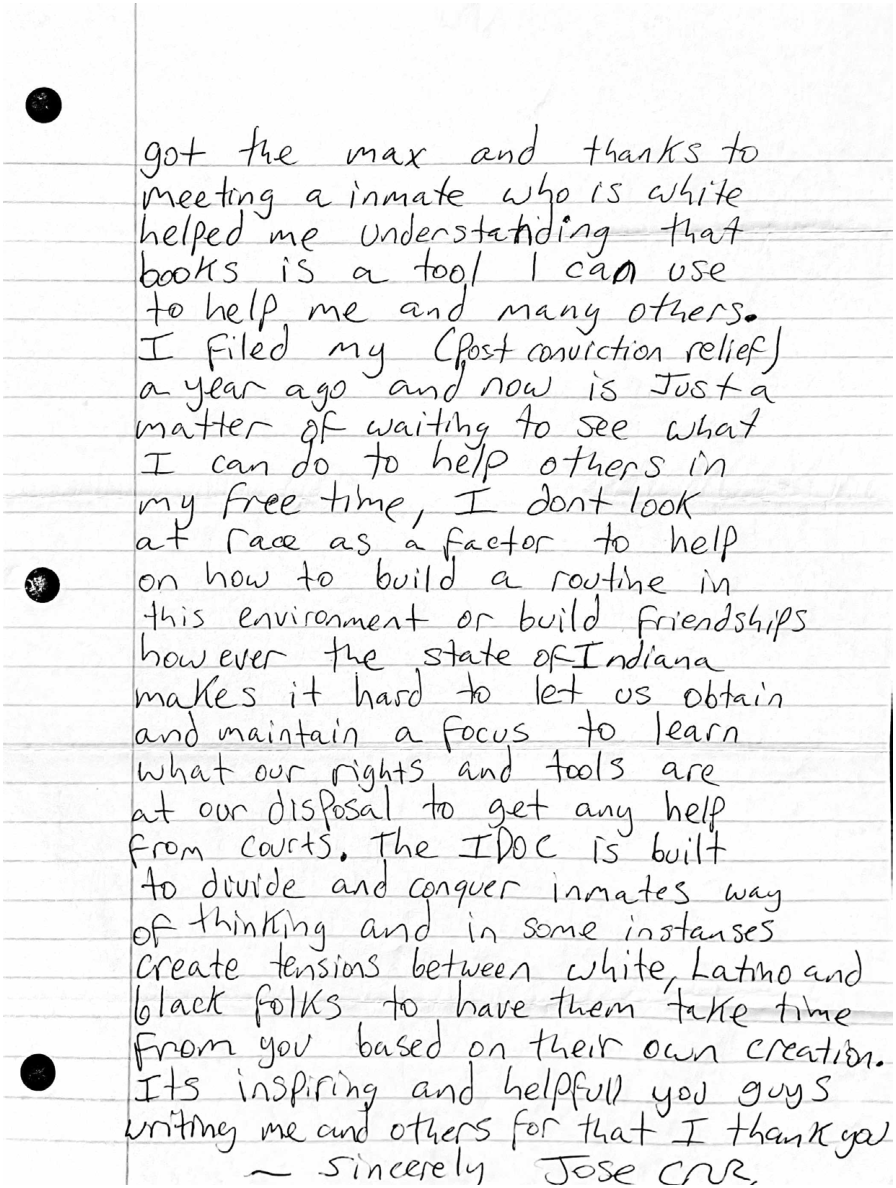 got the max and thanks to
meeting a inmate who is white
helped me understanding that
books is a tool I can use
to help me and many others.
I filed my (Post conviction relief)
a year ago and now is Just a
matter of waiting to see what
I can do to help others in
my free time, I dont look
at race as a factor to help
on how to build a routine in
this environment or build friendships
however the state of Indiana
makes it hard to let us obtain
and maintain a focus to learn
what our rights and tools are
at our disposal to get any help
from courts. The IDOC is built
to divide and conquer inmates way
of thinking and in some instanses
create tensions between white, Latino and
black folks to have them take time
from you based on their own creation.
Its inspiring and helpfull you guys
writing me and others for that I thank you
~ sincerely Jose